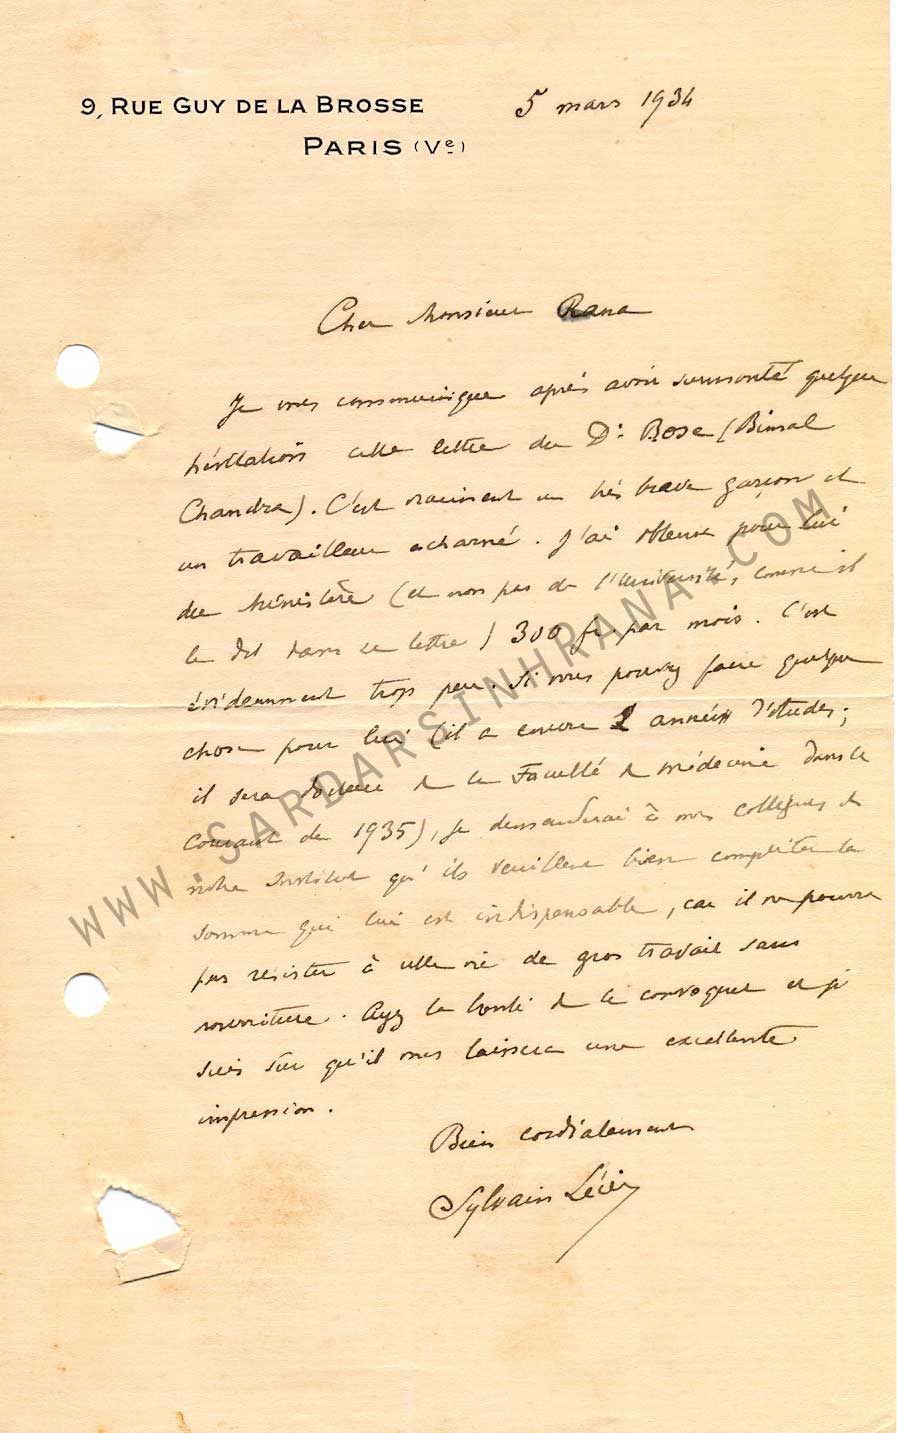 9, RUE GUY DE LA BROSSE
PARIS (Ve)
5 mars 1934
Cher Monsieur Rana
Je vous communique après avoir surmonté quelque
hésitation cette lettre du Dr Bose (Bimal
Chandra). C'est vraiment un très brave garçon et
un travailleur acharné. J'ai obtenu pour lui
du Ministère (et non pas de l'Université, comme il
le dit dans sa lettre) 300 fr par mois. C'est
évidemment trop peu. Si vous pouvez faire quelque
chose pour lui (il a encore 2 années d'études;
il sera docteur de la Faculté de médecine dans le
courant de 1935), je demanderai à mes collègues de
notre Institut qu'ils veuillent bien compléter la
somme qui lui est indispensable, car il ne pourra
pas résister à cette vie de gros travail sans
nourriture. Ayez la bonté de le convoquer et je
suis sûr qu'il vous laissera une excellente
impression.
Bien cordialement
Sylvain Lévi
WWW.SARDARSINHRANA.COM